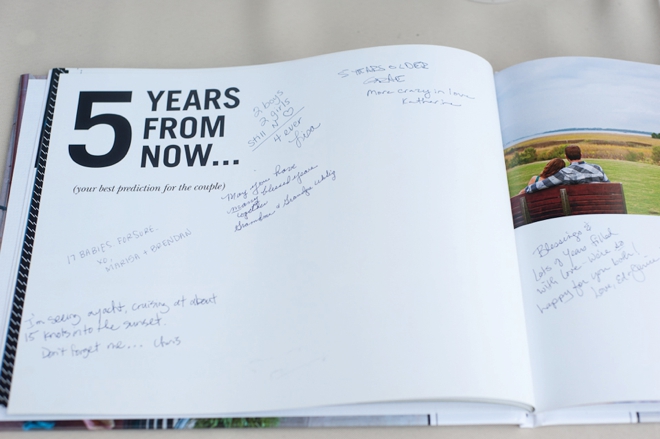 5 YEARS
FROM
NOW...
(your best prediction for the couple)
2 boys
2 girls
Still N ♡
4 ever
Lisa
5 YEARS OLDER
More crazy in love
Katherine
May you have
many blessed years
together
Grandma & Grandpa
17 BABIES FORSURE.
XO,
MARISA + BRENDAN
I'm seeing a yacht, cruising at about
15 knots into the sunset.
Don't forget me... Chris
Blessings &
lots of years filled
with love. We're so
happy for you both!
Love,